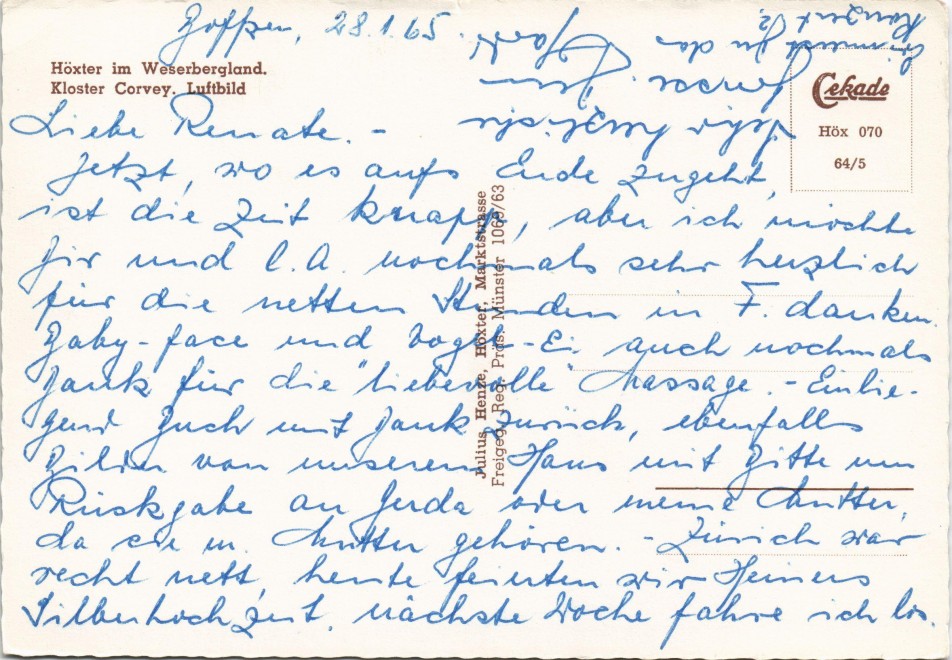 Höxter im Weserbergland.
Kloster Corvey. Luftbild
28.1.65.
Cekade
Höx 070
64/5
Julius Henze, Höxter, Marktstrasse
Freigeg. Reg. Präs. Münster 1069/63
Liebe Renate. -
Jetzt, wo es aufs Ende zugeht,
ist die Zeit knapp, aber ich möchte
Dir und l.A. nochmals sehr herzlich
für die netten Stunden in F. danken.
Baby-face und Vogel-Ei auch nochmals
Dank für die "liebevolle" Massage. - Einlie-
gend Buch mit Dank zurück, ebenfalls
Bilder von unserem Haus mit Bitte um
Rückgabe an Gerda oder meine Mutter,
da sie m. Mutter gehören. - Zürich war
recht nett, heute feierten wir Heiners
Silberhochzeit, nächste Woche fahre ich los.